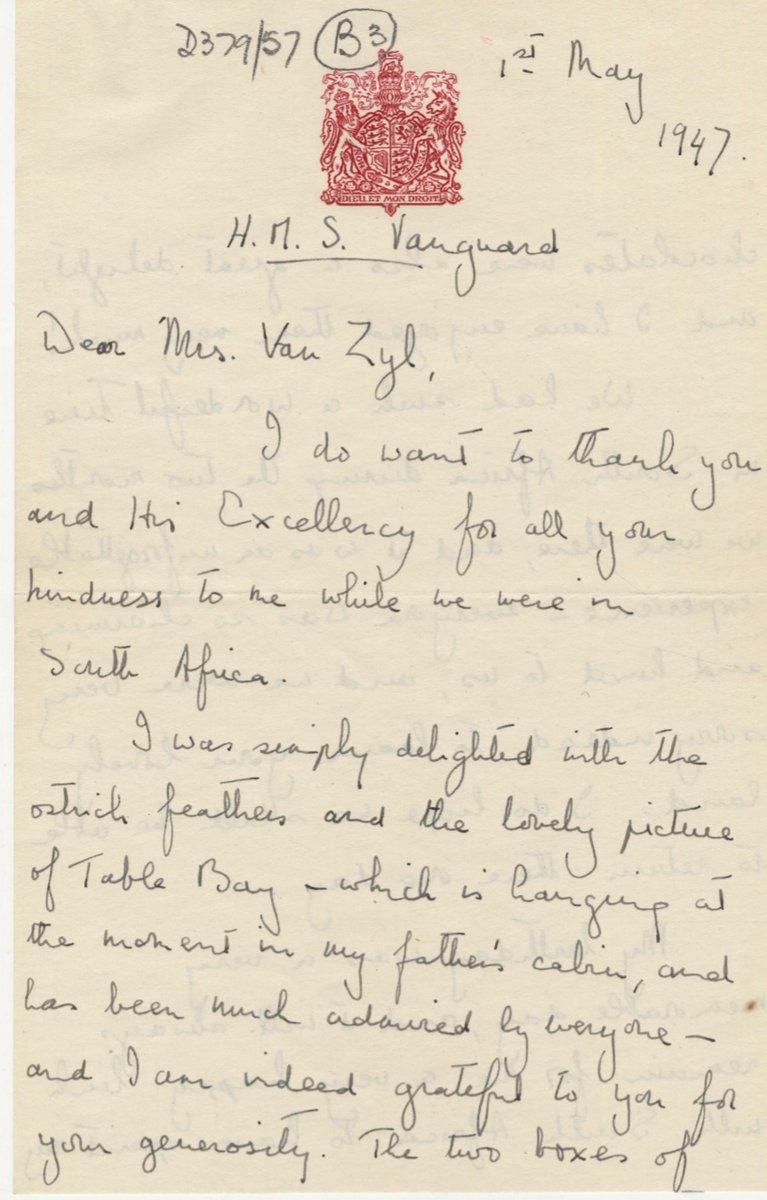 D379/57 B3
1st May
1947.
DIEU ET MON DROIT
H.M.S. Vanguard
Dear Mrs. Van Zyl,
I do want to thank you
and His Excellency for all your
kindness to me while we were in
South Africa.
I was simply delighted with the
ostrich feathers and the lovely picture
of Table Bay – which is hanging at
the moment in my father's cabin, and
has been much admired by everyone –
and I am indeed grateful to you for
your generosity. The two boxes of